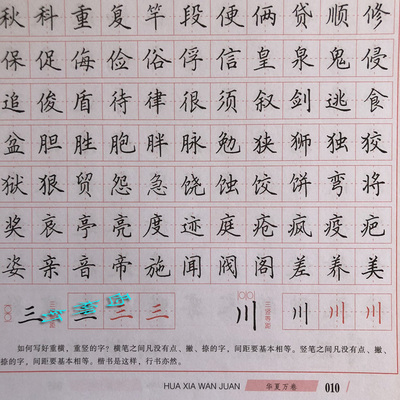 秋科重复竿段便俩贷顺修
保促侮俭俗俘信皇泉鬼侵
追俊盾待律很须叙剑逃食
盆胆胜胞胖脉勉狭狮独狡
狱狠贸怨急饶蚀饺饼弯将
奖哀亭亮度迹庭疮疯疫疤
姿亲音帝施闻阀阁差养美
三 三 三 三 川 川 川 川
如何写好重横、重竖的字？横笔之间凡没有点、撇、
捺的字，间距要基本相等。竖笔之间凡没有点、撇、
捺的字，间距要基本相等。楷书是这样，行书亦然。
HUA XIA WAN JUAN 华夏万卷 010